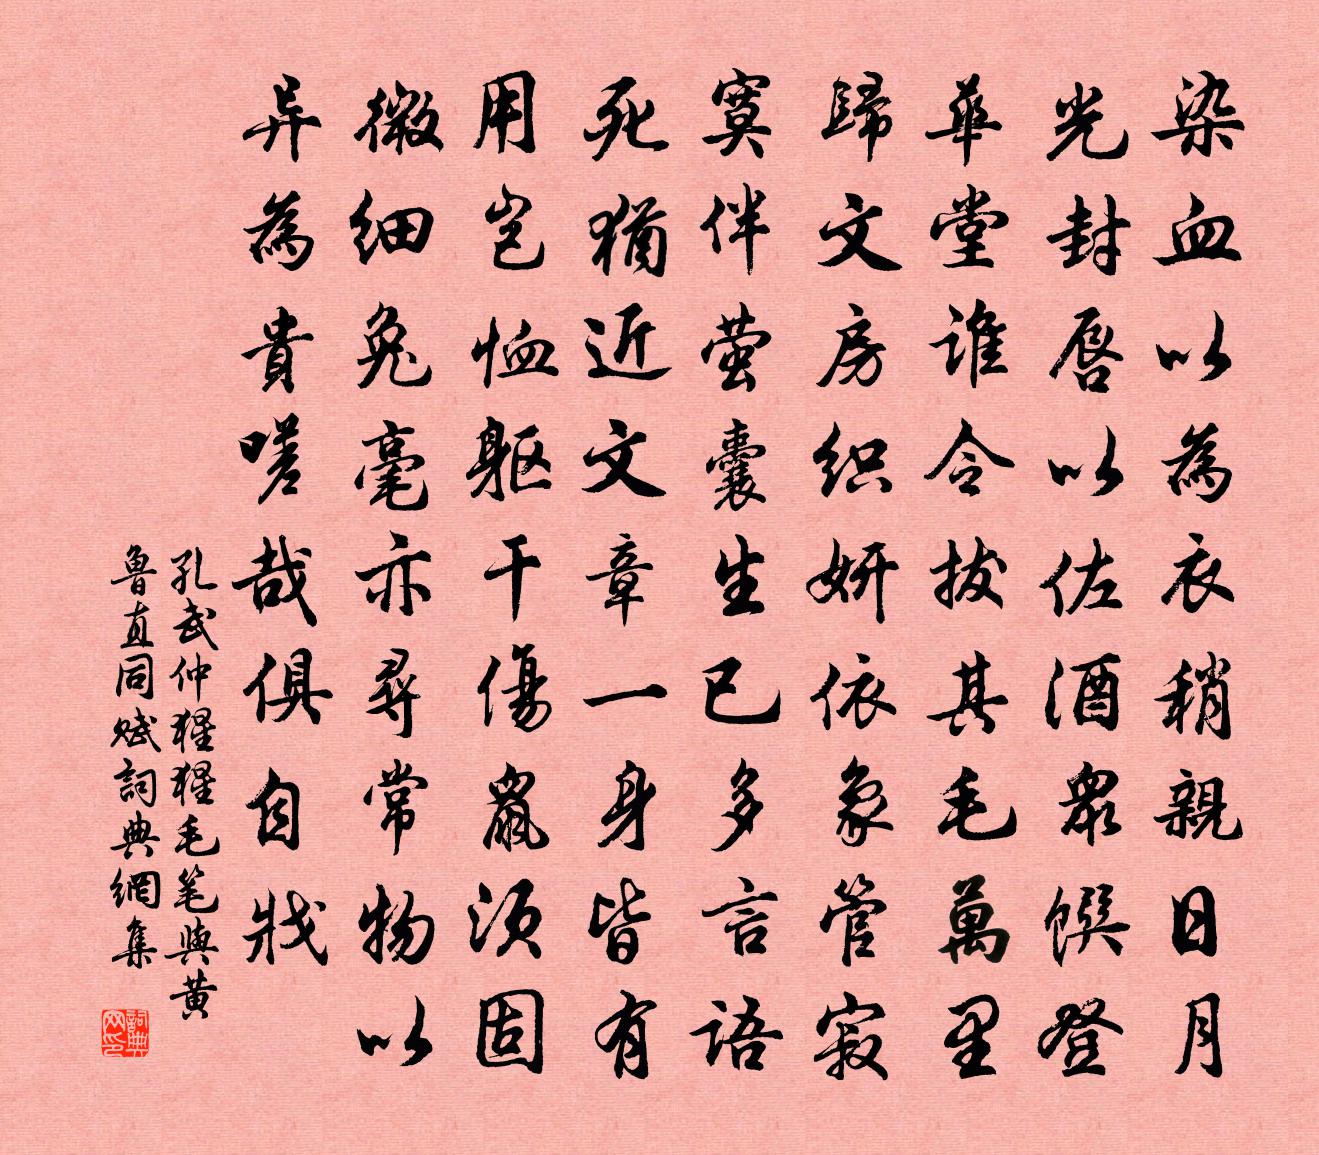 染血以為衣稍親日月
光封唇以佐酒眾饌登
華堂誰令拔其毛萬里
歸文房织妍依象管寂
寞伴萤囊生已多言語
死猶近文章一身皆有
用岂恤軀干傷鼠须固
微细兔毫亦尋常物以
异為貴嗟哉俱自戕
孔武仲猩猩毛笔與黄
魯直同赋詞典網集
詞典网印